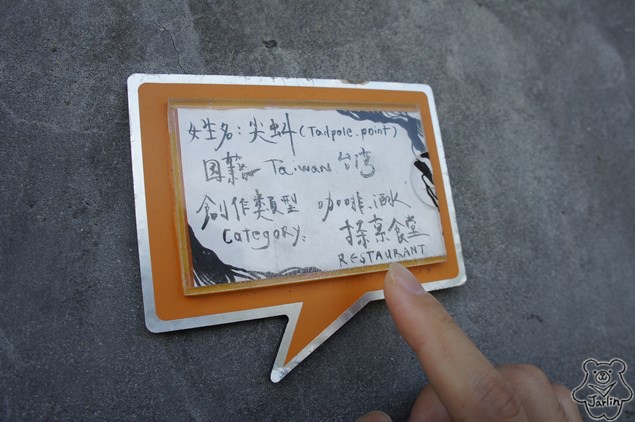 姓名：尖蚪(Tadpole.point)
国籍 Taiwan 台湾
創作類型 咖啡、酒水
Category: 探索食堂
RESTAURANT
Jarlin